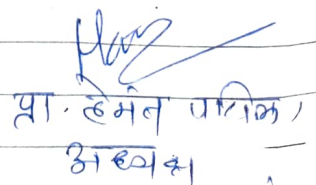 प्रा. हेमंत पाटील,
अध्यक्ष